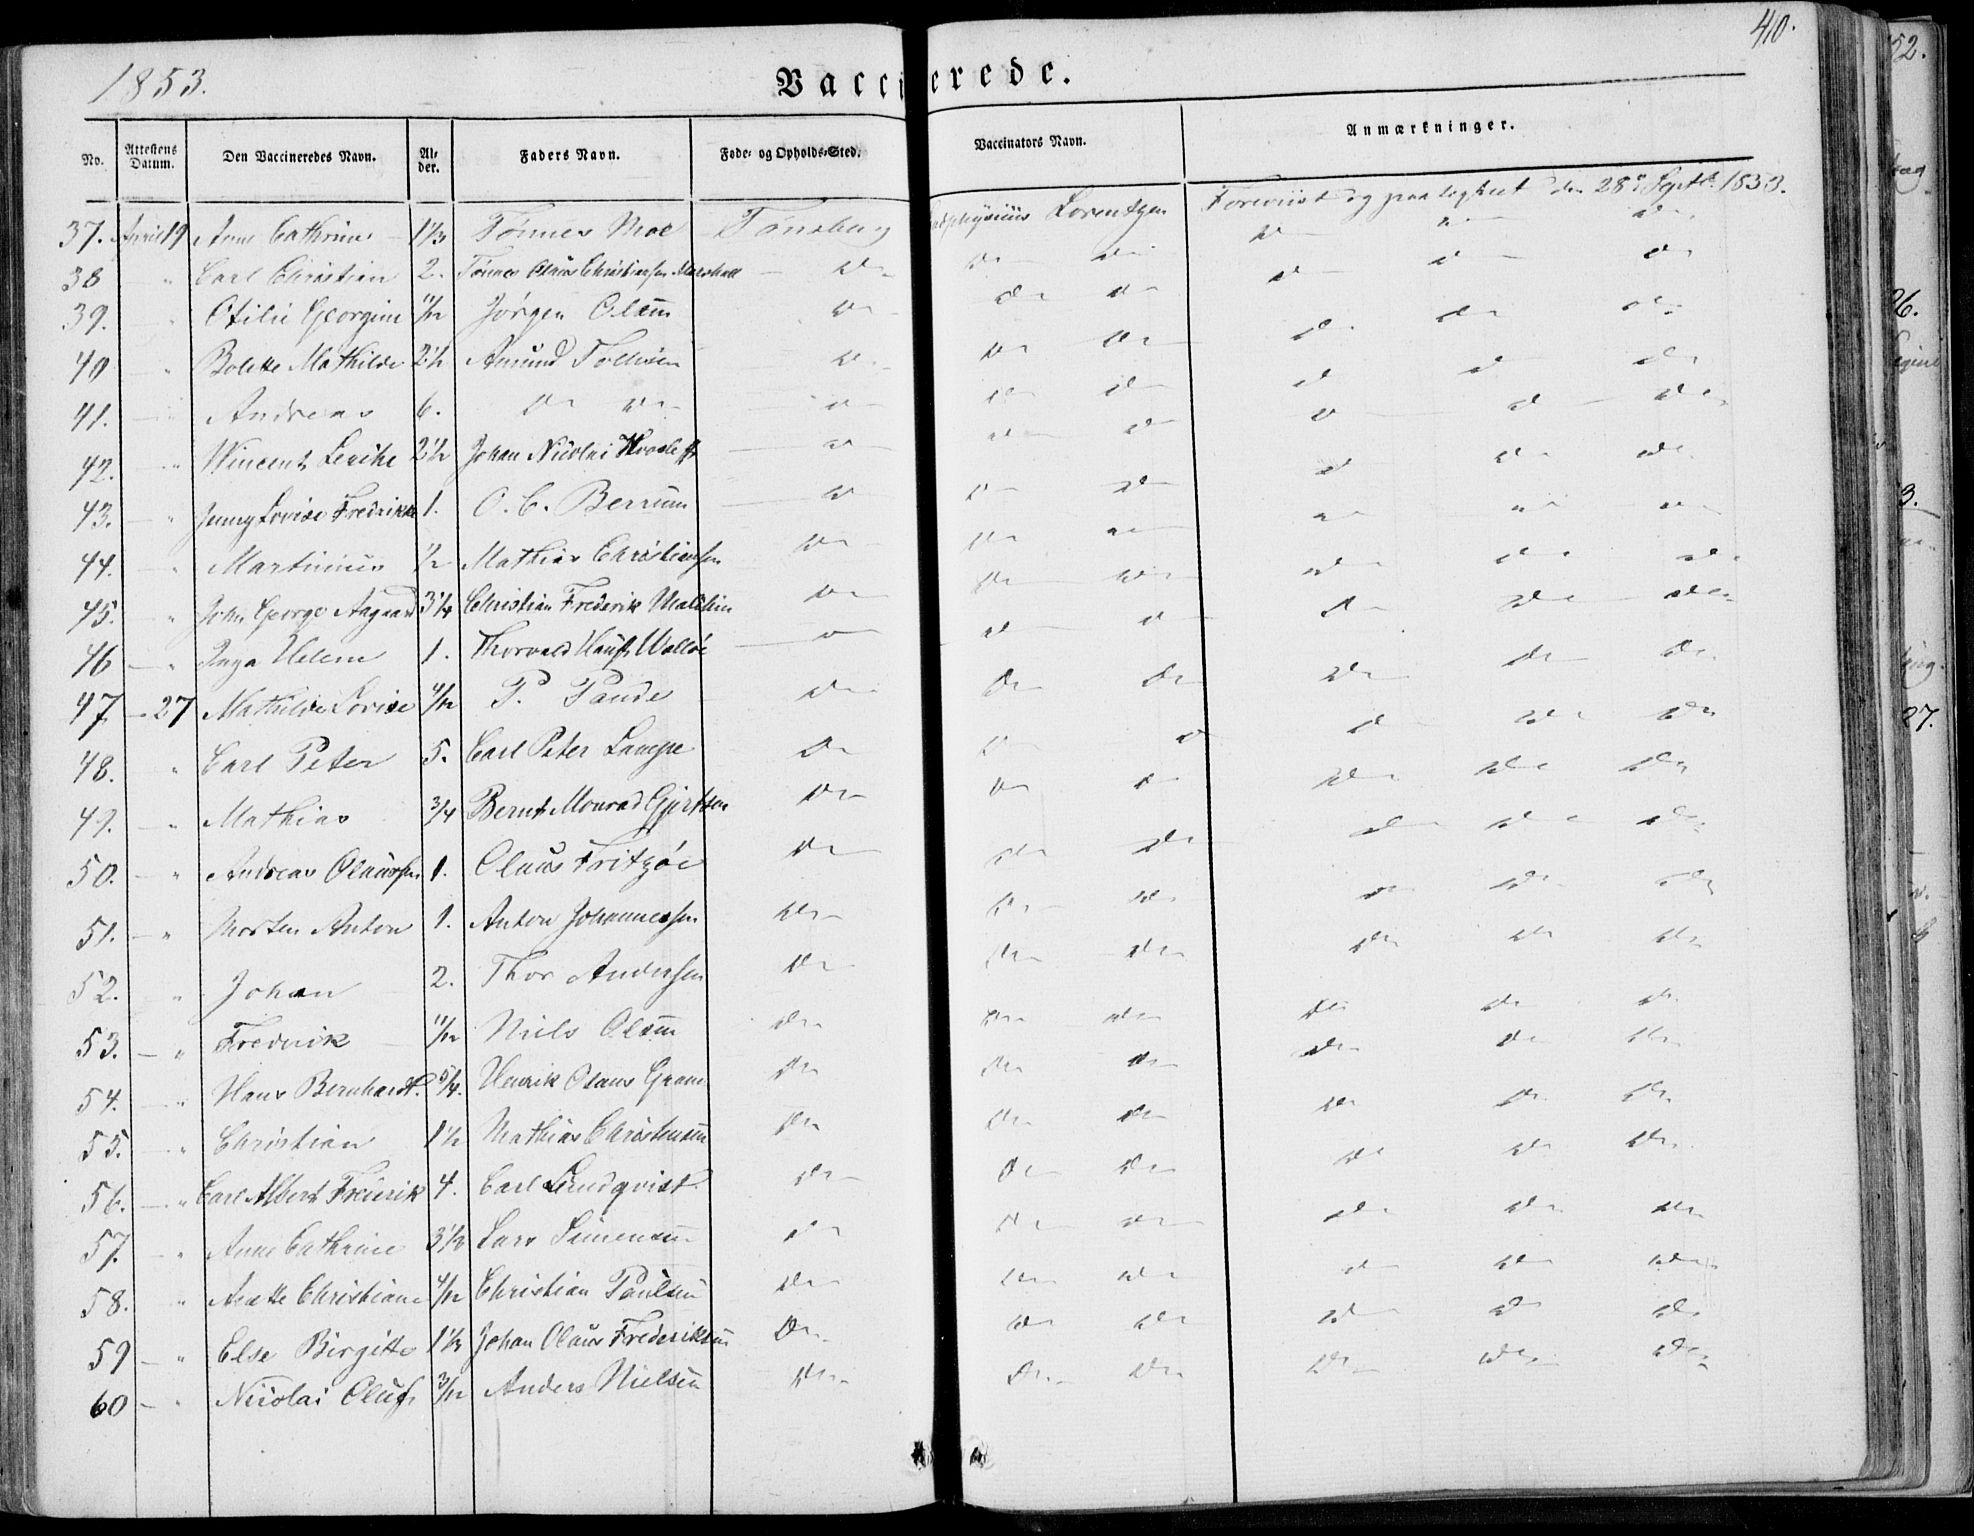 1853.
Vaccinerede.
410.
No. Attestens Datum. Den Vaccineredes Navn. Alder. Faders Navn. Føde- og Opholds-Sted. Vaccinators Navn. Anmærkninger.
37. April 19 Anne Cathrine 1 1/3 Tønnes Moe Tønsberg Lorentzen Foreviist og paategnet den 28de Septbr. 1853.
38 " Carl Christian 2. Tønnes Olaus Christiansen do do do do do do
39. " Otilie Georgine 11/12 Jørgen Olsen do do do do do do
40 " Bolette Mathilde 2 1/2 Amund Tollefsen do do do do do do
41. " Andreas 6. do do do do do do do do
42. " Wincent Lerche 2 1/2 Johan Nicolai do do do do do do
43. " Jenny Lovise Fredrikke 1. O. C. Berrum do do do do do do
44. " Martinius 1/2 Mathias Christiansen do do do do do do
45. " John George Aagaard 3 1/4 Christian Frederik do do do do do do
46 " Inga Helene 1. Thorvald Walløe do do do do do do
47 - 27 Mathilde Lovise 4/12 P. Paude do do do do do do
48. " Carl Peter 5. Carl Peter Lampe do do do do do do
49. " Mathias 3/4 Bernt Monrad Gjertsen do do do do do do
50. " Andreas Olaussen 1. Olaus Fritzøe do do do do do do
51. " Morten Anton 1. Anton Johannessen do do do do do do
52. " Johan 2. Thor Andersen do do do do do do
53. " Fredrik 11/12 Niels Olsen do do do do do do
54. " Hans Bernhardt. 5/4. Henrik Olaus Gram do do do do do do
55. " Christian 1 1/2 Mathias Christensen do do do do do do
56. " Carl Albert Frederik 4. Carl Lundqvist. do do do do do do
57. " Anne Cathrine 3 1/2 Lars Simensen do do do do do do
58. " Anette Christiane 4/12 Christian Paulsen do do do do do do
59 " Else Birgitte 1 1/2 Johan Olaus Frederiksen do do do do do do
60 " Nicolai Oluf 3/12 Anders Nielsen do do do do do do